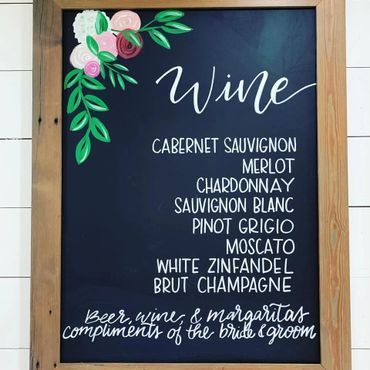 Wine
CABERNET SAUVIGNON
MERLOT
CHARDONNAY
SAUVIGNON BLANC
PINOT GRIGIO
MOSCATO
WHITE ZINFANDEL
BRUT CHAMPAGNE
Beer, wine, & margaritas
compliments of the bride & groom